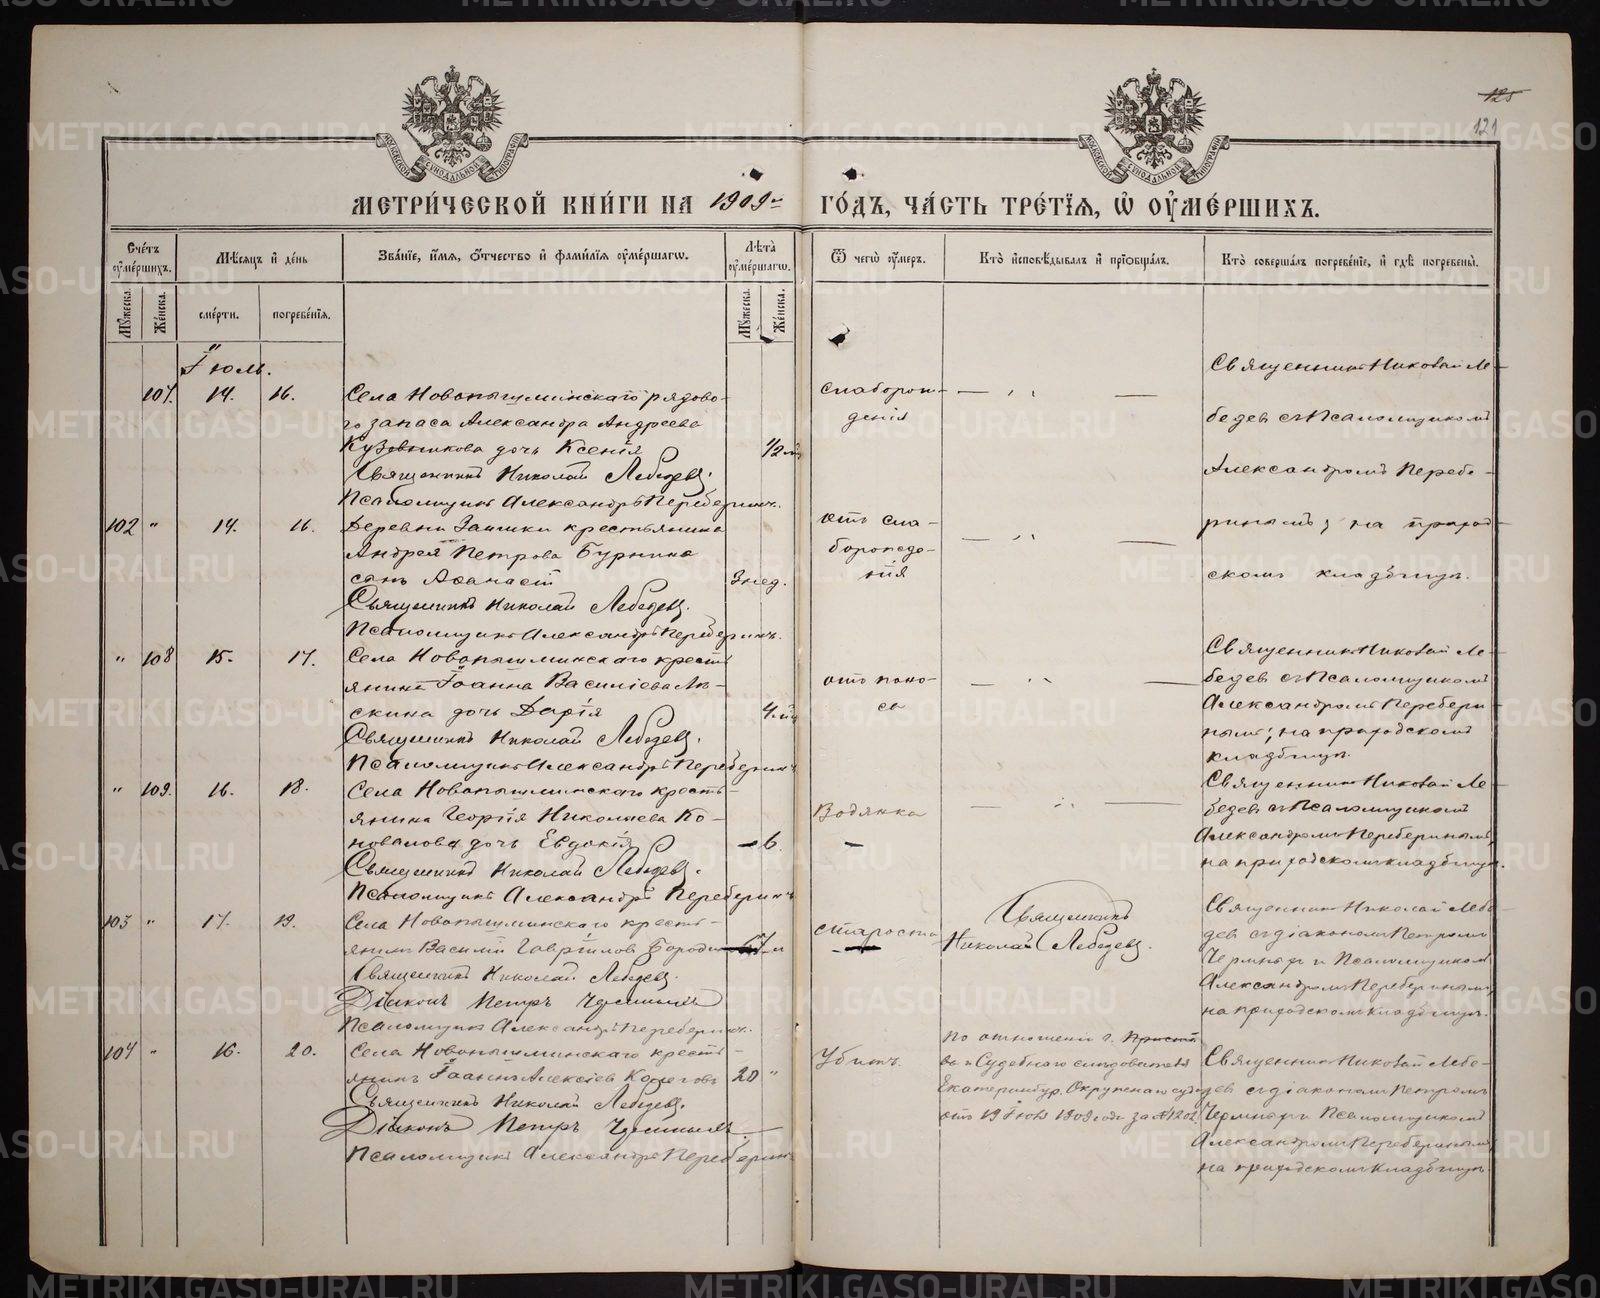 125
121
МОСКОВСКОЙ СѴНОДАЛЬНОЙ ТИПОГРАФІИ
МОСКОВСКОЙ СѴНОДАЛЬНОЙ ТИПОГРАФІИ
МЕТРИ́ЧЕСКОЙ КНИ́ГИ НА 1909й ГО́ДЪ, ЧА́СТЬ ТРЕ́ТІѦ, Ѡ ОУМЕ́РШИХЪ.
Сче́тъ оуме́ршихъ.
Мѣ́сяцъ и де́нь
Зва́ніе, и́мя, о́тчество и фами́лія оуме́ршагѡ.
Лѣ́та оуме́ршагѡ.
Ѿ чегѡ̀ оу́меръ.
Кто̀ исповѣ́дывалъ и пріобща́лъ.
Кто̀ соверша́лъ погребе́ніе, и гдѣ̀ погребены̀.
Му́жеска.
Же́нска.
сме́рти.
погребе́нія.
Му́жеска.
Же́нска.
Іюль.
107. 14. 16.
Села Новопышминскаго рядово-
го запаса Александра Андреева
Кузовникова дочь Ксенія
1/2 м.
Священникъ Николай Лебедевъ.
Псаломщикъ Александръ Переберинъ.
слаборож-
денія
— " —
Священникъ Николай Ле-
бедев съ Псаломщикомъ
Александромъ Перебе-
ринымъ; на приход-
скомъ кладбищѣ.
102 " 14. 16.
Деревни Заимки крестьянина
Андрея Петрова Бурнина
сынъ Аѳанасій
3 нед.
Священникъ Николай Лебедевъ.
Псаломщикъ Александръ Переберинъ.
отъ сла-
борожде-
нія
— " —
" 108 15. 17.
Села Новопышминскаго кресть
янина Іоанна Васильева
скина дочь Дарія
4 м.
Священникъ Николай Лебедевъ.
Псаломщикъ Александръ Переберинъ
отъ поно-
са
— " —
Священникъ Николай Ле-
бедев съ Псаломщикомъ
Александромъ Перебери
нымъ; на приходскомъ
кладбищѣ.
" 109. 16. 18.
Села Новопышминскаго кресть-
янина Георгія Николаева Ко-
новалова дочь Евдокія
— 6.
Священникъ Николай Лебедевъ.
Псаломщикъ Александръ Переберинъ
Водянка
—
— " —
Священникъ Николай Ле-
бедевъ съ Псаломщикомъ
Александромъ Перебериным,
на приходскомъ кладбищѣ.
103 " 17. 19.
Села Новопышминского кресть-
янинъ Василій Гаврілов
67
Священникъ Николай Лебедевъ.
Діаконъ Петръ
Псаломщикъ Александръ Переберинъ.
старости
Священникъ
Николай Лебедевъ.
Священник Николай Лебе-
дев съ діакономъ Петромъ
и Псаломщиком
Александромъ Перебериным,
на приходскомъ кладбищѣ.
104 " 16. 20.
Села Новопышминскаго кресть-
янинъ Іоаннъ Алексіев
20 "
Священникъ Николай Лебедевъ.
Діаконъ Петръ
Псаломщикъ Александръ Переберинъ
Убитъ.
По отношенію г.
Судебнаго слѣдователя
Екатеринбур. Окружнаго суда
отъ 19 Іюля 1909 года за № 1202.
Священникъ Николай Лебе-
дев съ діакономъ Петромъ
и Псаломщикомъ
Александромъ Перебериным,
на приходскомъ кладбищѣ.
METRIKI.GASO-URAL.RU